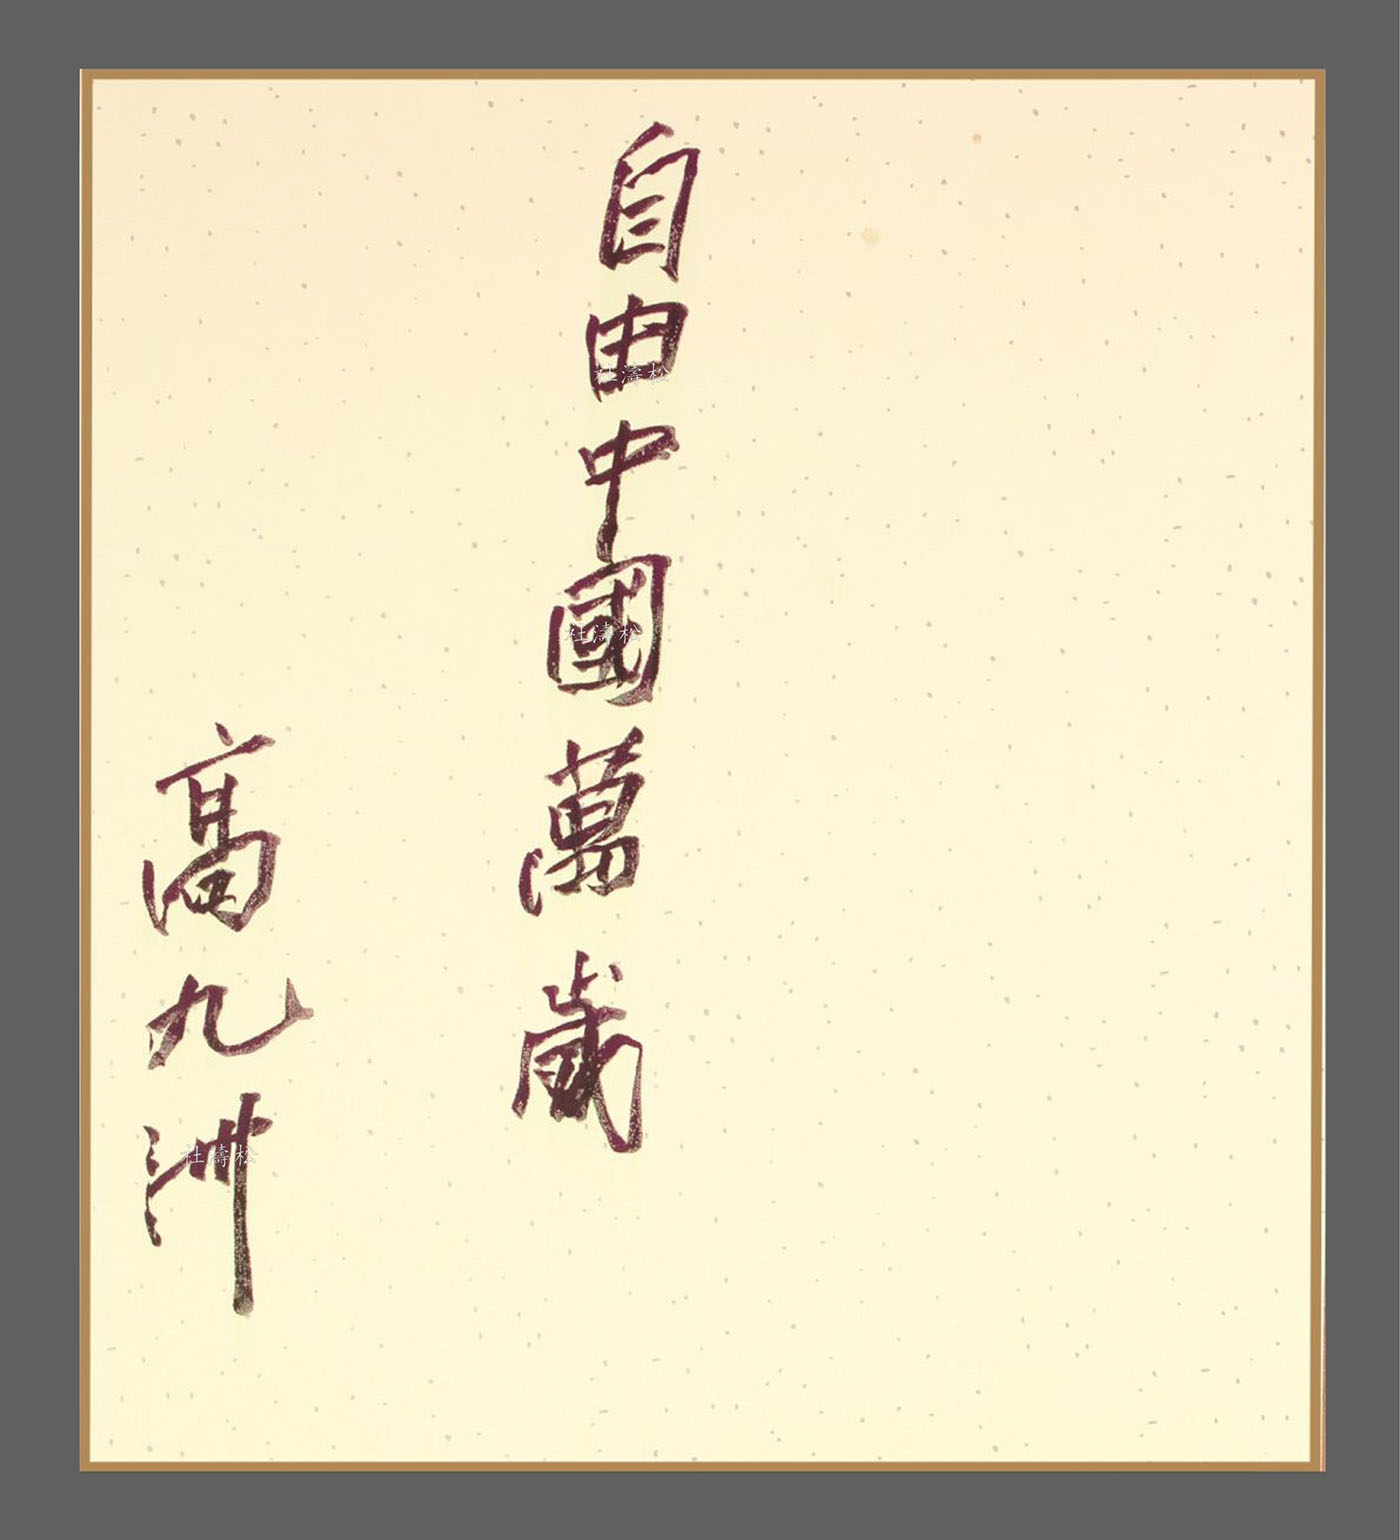 自由中國萬歲
高九洲
杜濤松
杜濤松
杜濤松